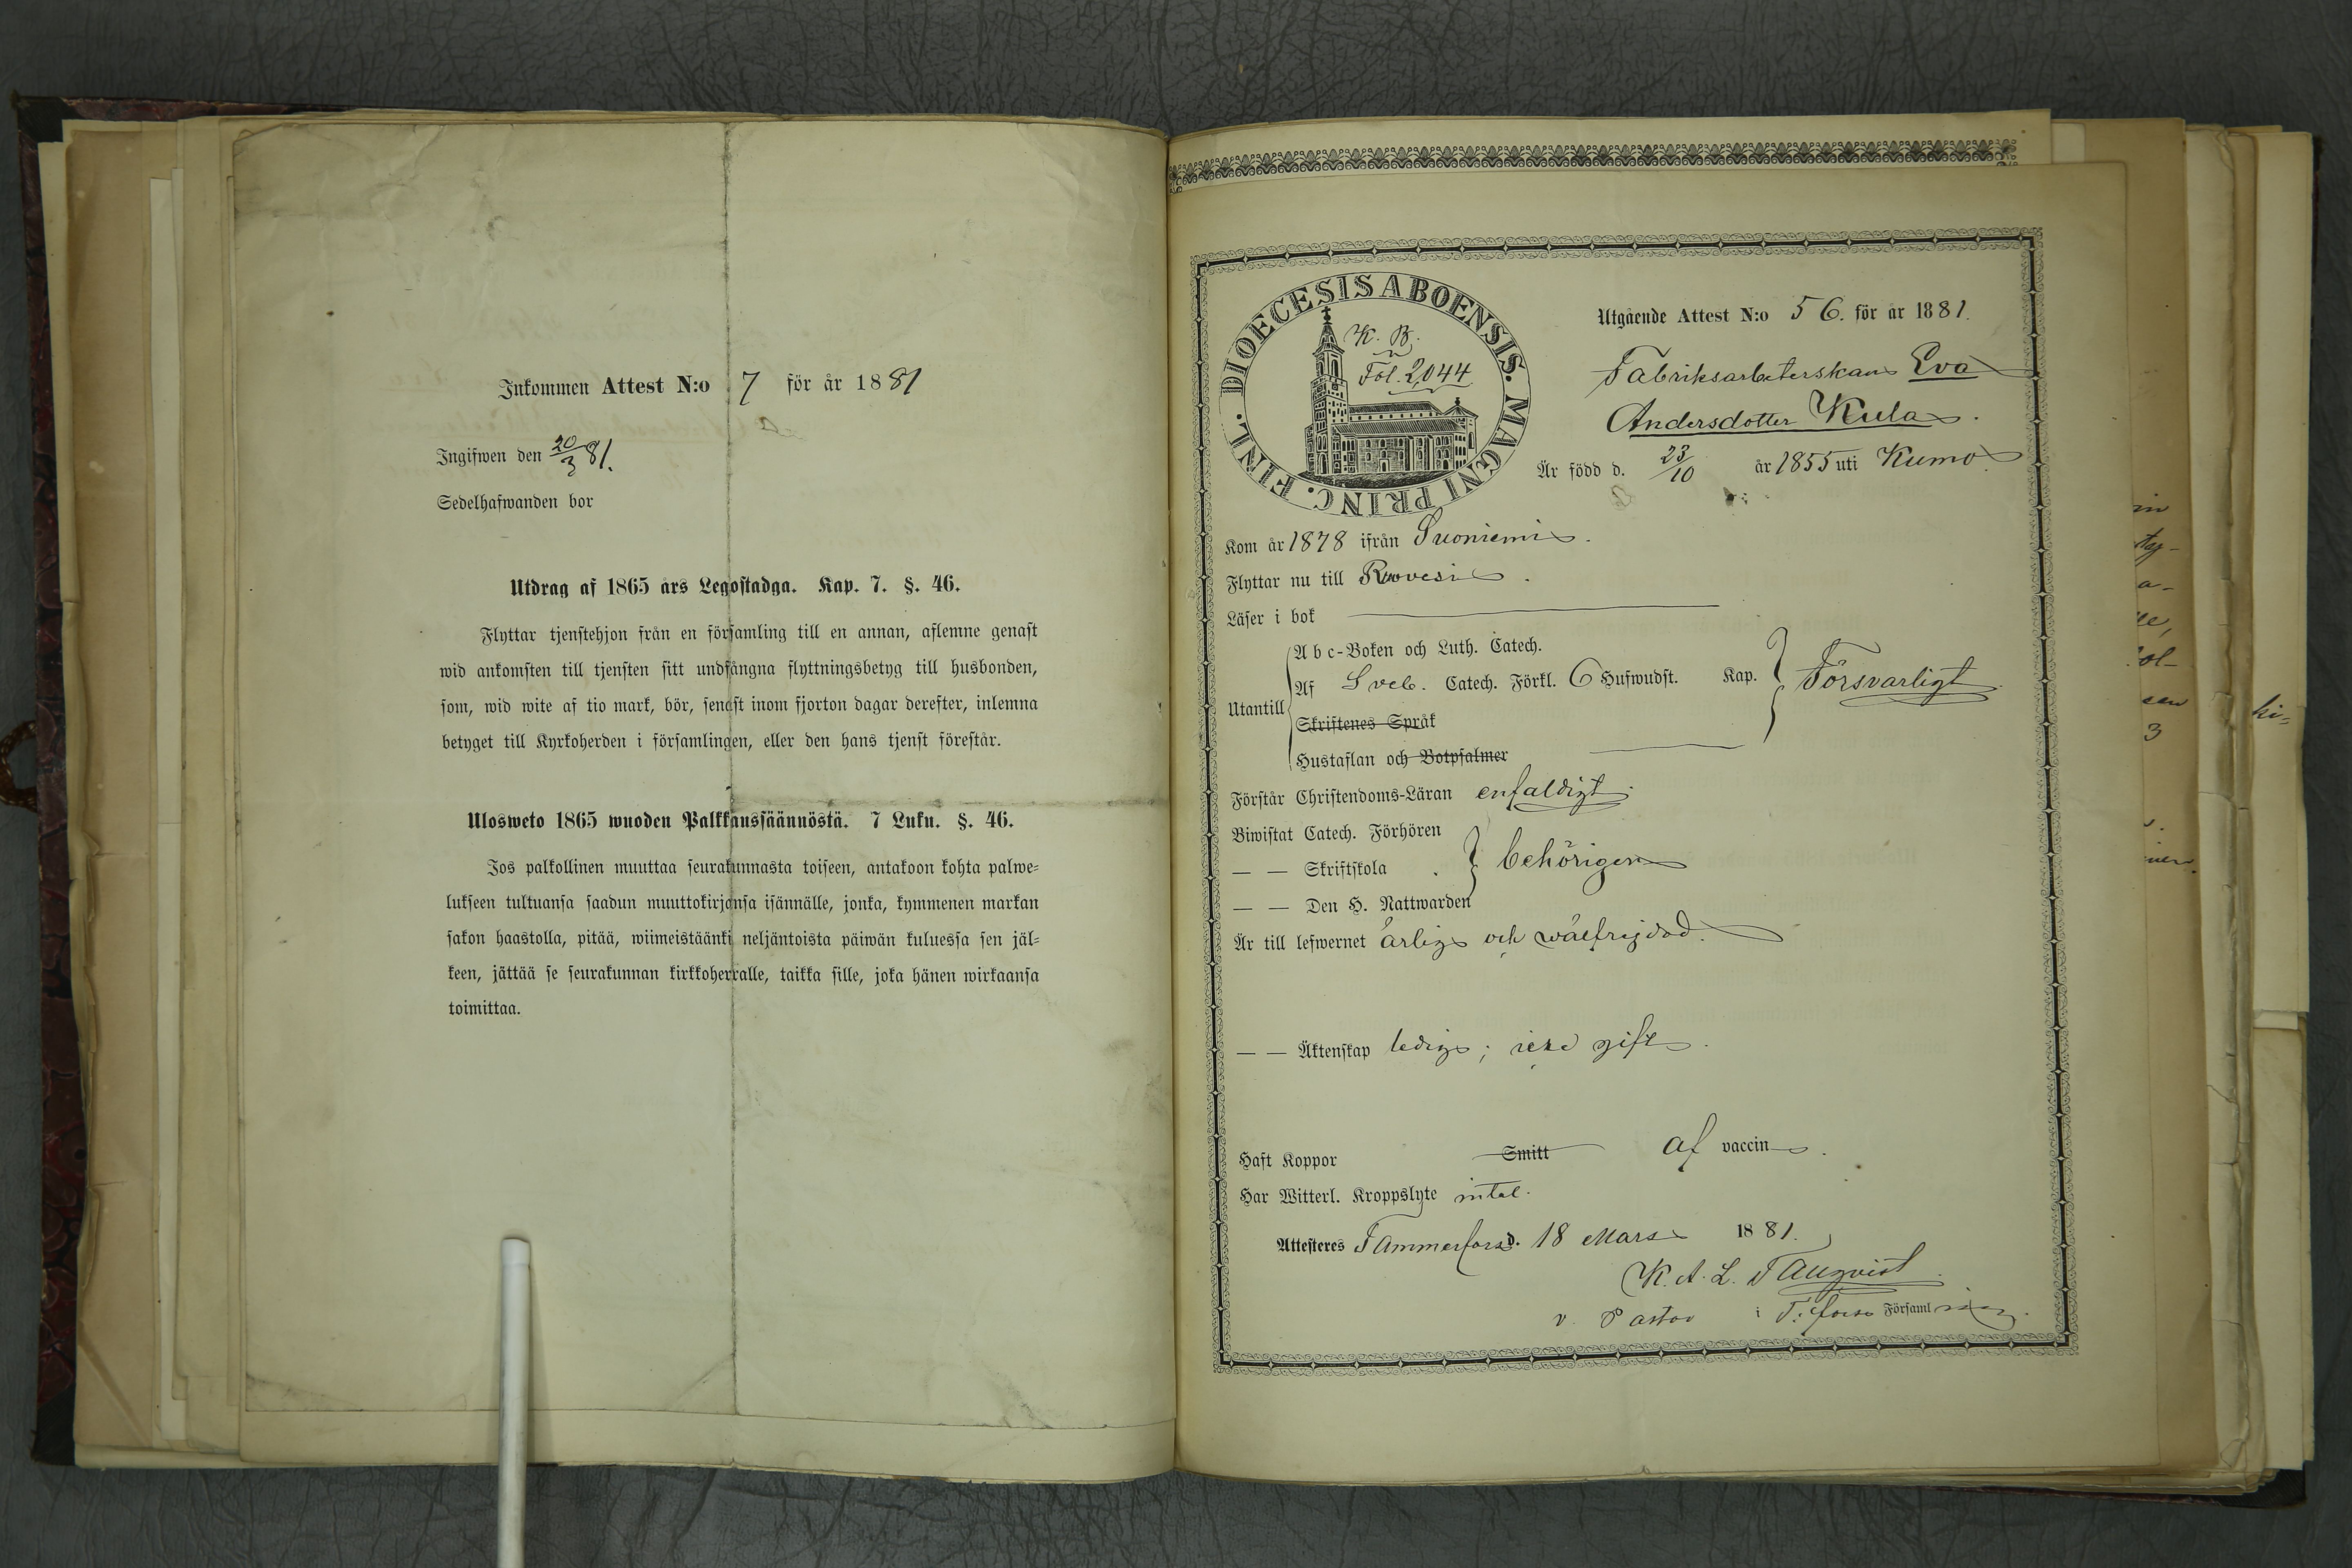 Inkommen Attest N:o 7 för år 1881
Ingifwen den 20/3 81.
Sedelhafwanden bor
Utdrag af 1865 års Legostadga. Kap. 7. §. 46.
Flyttar tjenstehjon från en församling till en annan, aflemne genast
wid ankomsten till tjensten sitt undfångna flyttningsbetyg till husbonden,
som, wid wite af tio mark, bör, senast inom fjorton dagar derefter, inlemna
betyget till Kyrkoherden i församlingen, eller den hans tjenst förestår.
Ulosweto 1865 wuoden Palkkaussäännöstä. 7 Luku. §. 46.
Jos palkollinen muuttaa seurakunnasta toiseen, antakoon kohta palwe-
lukseen tultuansa saadun muuttokirjansa isännälle, jonka, kymmenen markan
sakon haastolla, pitää, wiimeistäänki neljäntoista päiwän kuluessa sen jäl-
keen, jättää se seurakunnan kirkkoherralle, taikka sille, joka hänen wirkaansa
toimittaa.
DIOECESIS ABOENSIS. MAGNI PRINC. FINL.
K. B.
Fol. 2,044
Utgående Attest N:o 56. för år 1881.
Fabriksarbeterskan Eva
Andersdotter Kula.
Är född d. 23/10 år 1855 uti Kumo.
Kom år 1878 ifrån Suoniemi.
Flyttar nu till Ruovesi.
Läser i bok
Utantill
Abc-Boken och Luth. Catech.
Af Sveb. Catech. Förkl. 6 Hufwudst. Kap. Försvarligt
Skriftenes Språk
Hustaflan och Botpsalmer
Förstår Christendoms-Läran enfaldigt.
Biwistat Catech. Förhören
— — Skriftskola behörigen
— — Den H. Nattwarden
Är till lefwernet ärlig och wälfrejdad.
— — Äktenskap ledig; icke gift.
Haft Koppor Smitt af vaccin.
Har Witterl. Kroppslyte intet.
Attesteres Tammerfors d. 18 Mars 1881.
K. A. L. Tallqvist
v. Pastor i T:fors Församling.